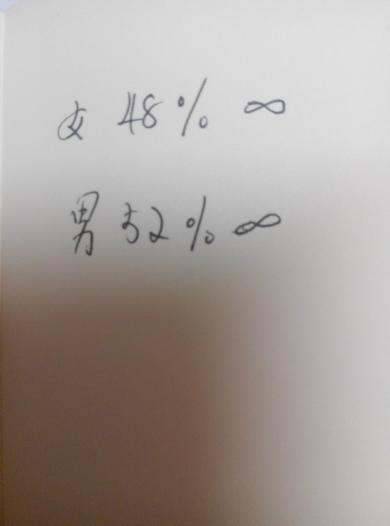 女 48% ∞
男 52% ∞